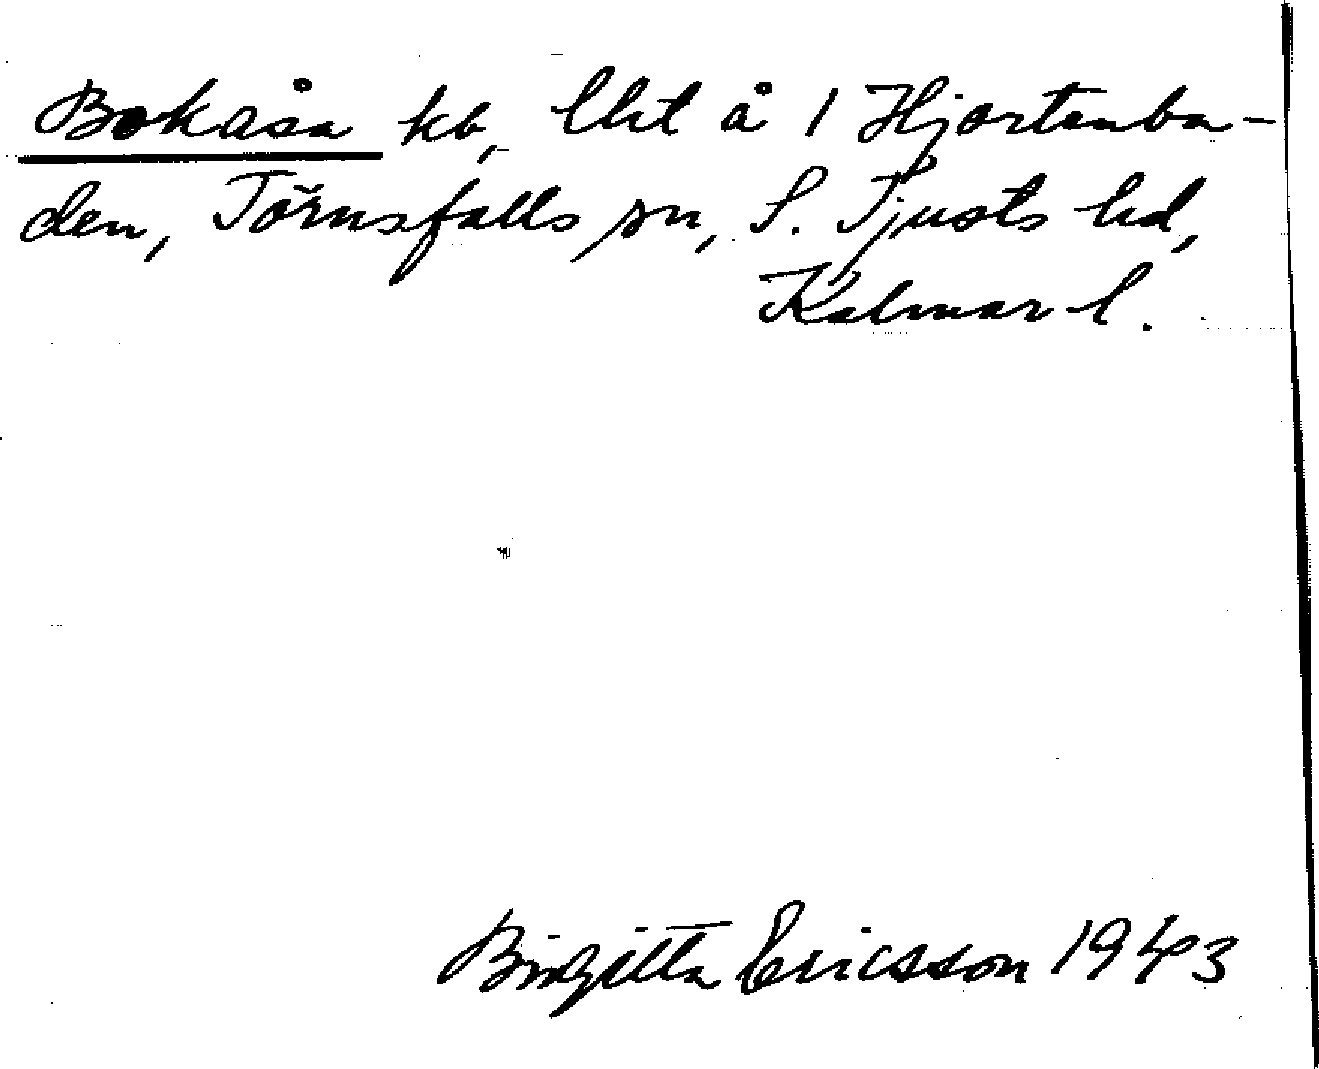 Bokåsa kb, lht å 1 Hjortenba-
den, Törnsfalls sn, S. Tjusts hd,
Kalmar l.
Birgitta Ericsson 1943